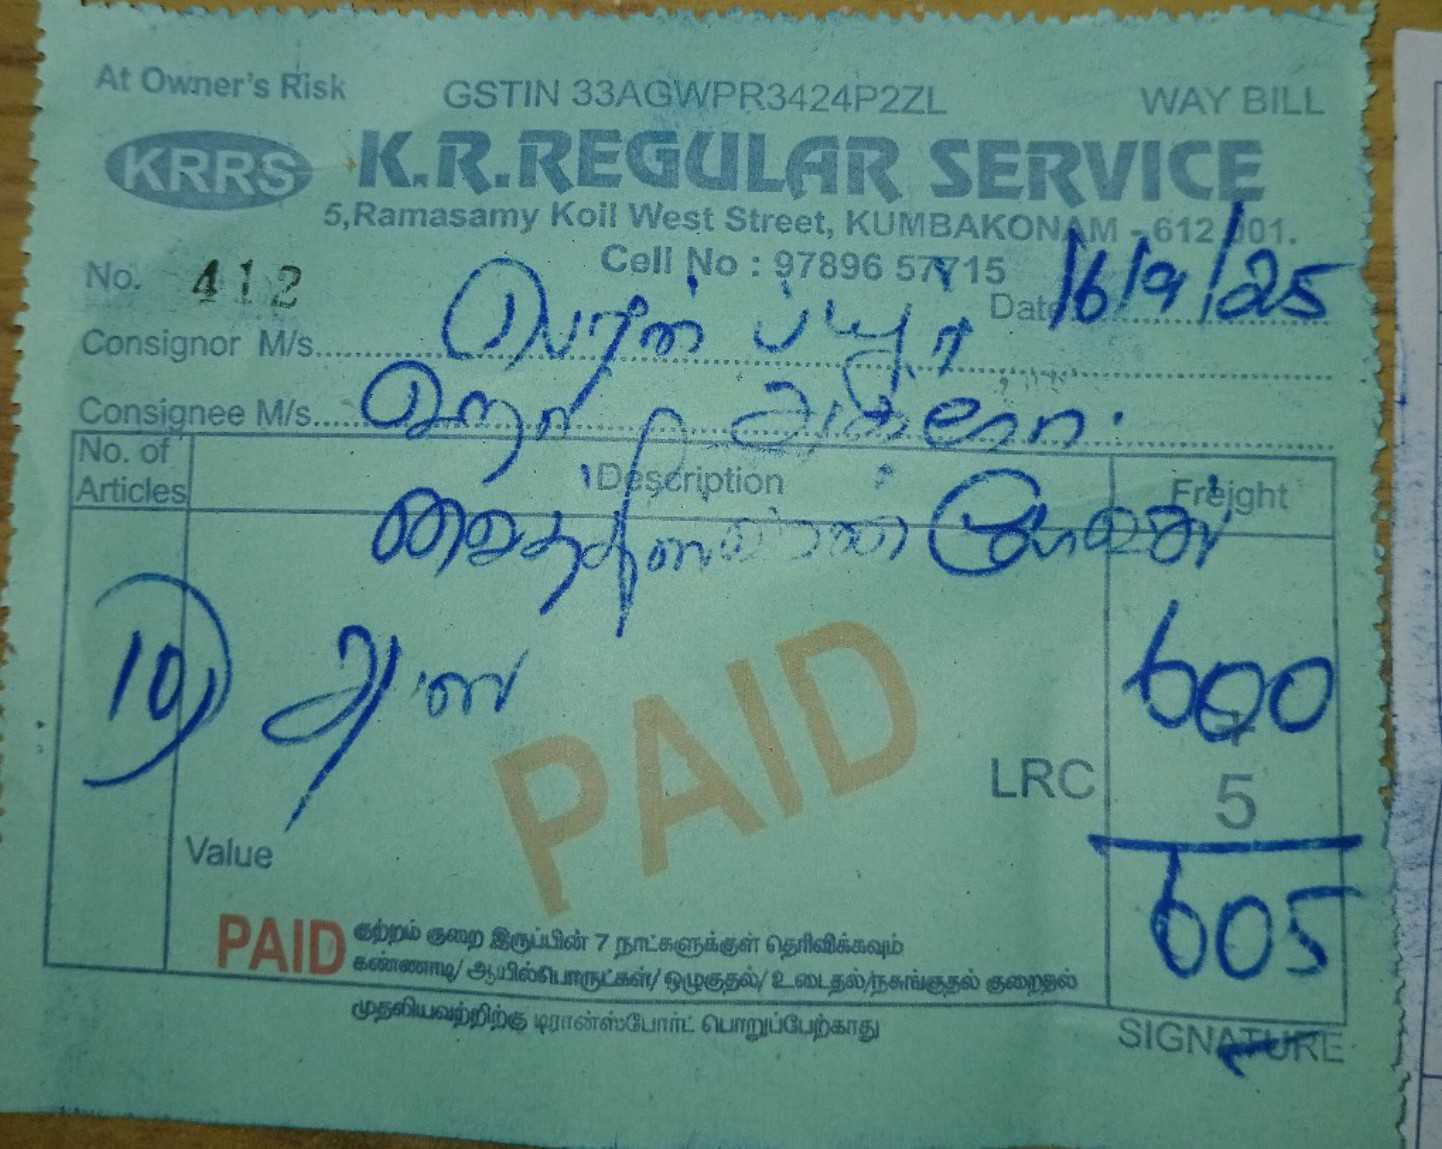 At Owner's Risk GSTIN 33AGWPR3424P2ZL WAY BILL
KRRS K.R.REGULAR SERVICE
5,Ramasamy Koil West Street, KUMBAKONAM - 612 001.
Cell No : 97896 57715
No. 412 Date 16/9/25
Consignor M/s.
Consignee M/s.
No. of Articles Description Freight
10 600
LRC +5
Value 605
PAID
PAID குற்றம் குறை இருப்பின் 7 நாட்களுக்குள் தெரிவிக்கவும்
கண்ணாடி/ ஆயில்பொருட்கள்/ ஒழுகுதல்/ உடைதல்/நசுங்குதல் குறைதல்
முதலியவற்றிற்கு டிரான்ஸ்போர்ட் பொறுப்பேற்காது
SIGNATURE